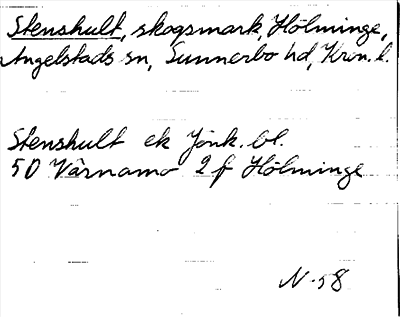 Stenshult, skogsmark, Hölminge,
Angelstads sn, Sunnerbo hd, Kron. l.
Stenshult ek Jönk. bl.
50 Värnamo 2 f Hölminge
N-58